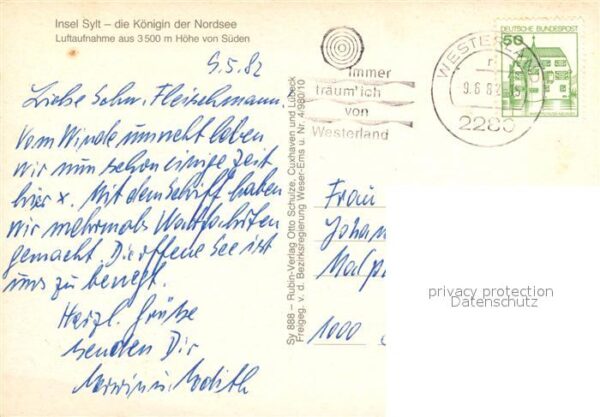 Insel Sylt – die Königin der Nordsee
Luftaufnahme aus 3500 m Höhe von Süden
9.5.82
Liebe Schw. Fleischmann.
Vom Winde umweht leben
wir nun schon einige Zeit
hier x. Mit dem Schiff haben
wir mehrmals
gemacht. Die offene See ist
uns zu bewegt.
Herzl. Grüße
senden Dir
Sy 888 – Rubin-Verlag Otto Schulze, Cuxhaven und Lübeck
Freigeg. v. d. Bezirksregierung Weser-Ems u. Nr. 4/980/10
immer
träum' ich
von
Westerland
WESTERLAND
2280
DEUTSCHE BUNDESPOST
50
Frau
Johan
1000
privacy protection
Datenschutz